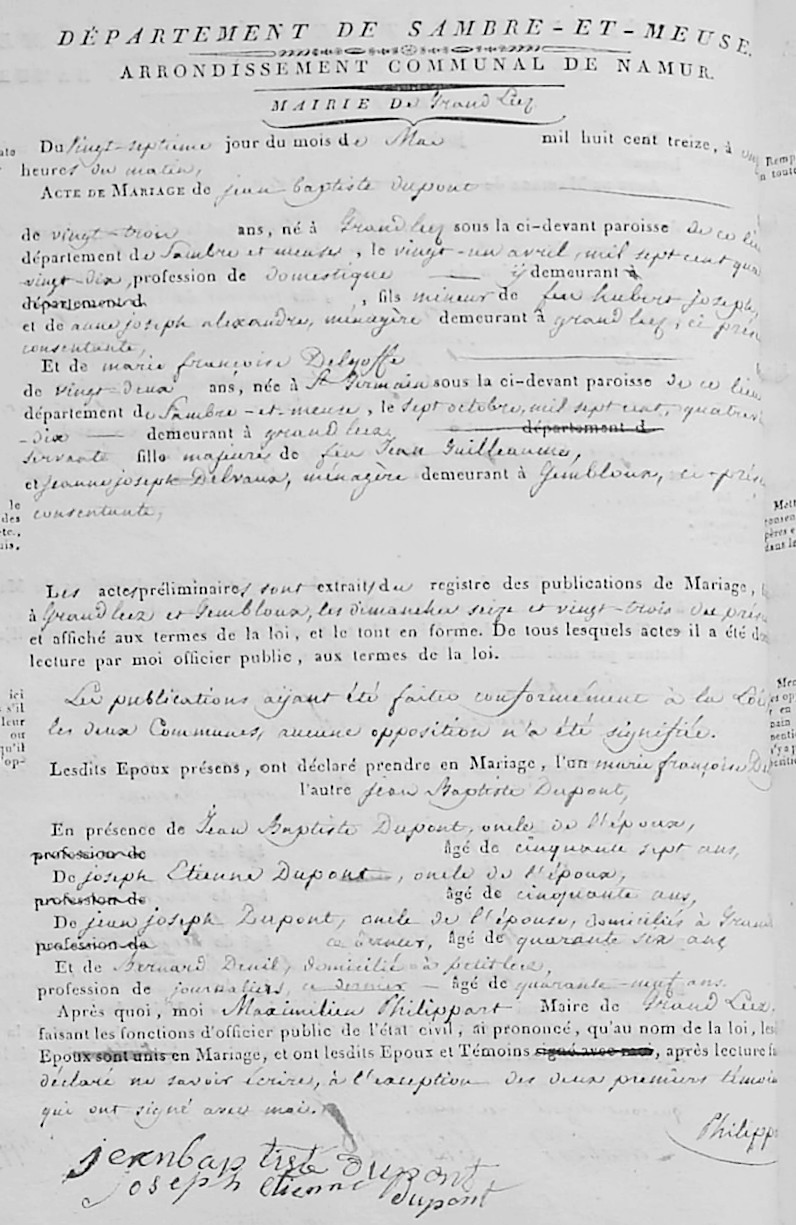 DÉPARTEMENT DE SAMBRE-ET-MEUSE.
ARRONDISSEMENT COMMUNAL DE NAMUR.
MAIRIE De Grand Leez
Du vingt-septieme jour du mois de Mai mil huit cent treize, à
heures du matin,
ACTE DE MARIAGE de jean baptiste dupont
de vingt-trois ans, né à Grandleez sous la ci-devant paroisse de ce lieu
département de Sambre et meuse, le vingt-un avril, mil sept cent qua
vingt-dix, profession de domestique y demeurant à
département d , fils mineur de feu hubert joseph,
et de anne joseph alexandre, ménagère demeurant à grand leez, ci prés
consentante,
Et de marie françoise Delyoffe
de vingt-deux ans, née à St Germain sous la ci-devant paroisse de ce lieu
département de Sambre-et-meuse, le sept octobre, mil sept cent, quatre
-dix demeurant à grand leez département d
servante fille majeure de feu Jean Guilleaume,
et Jeanne joseph Delvaux, ménagère demeurant à Gembloux, ci-prés
consentante,
Les actes préliminaires sont extraits du registre des publications de Mariage,
à Grand leez et Gembloux, les dimanches seize et vingt-trois du prés
et affiché aux termes de la loi, et le tout en forme. De tous lesquels actes il a été do
lecture par moi officier public, aux termes de la loi.
Les publications aijant été faites conformément à la Loi
les deux Communes, aucune opposition n'a été signifiée.
Lesdits Epoux présens, ont déclaré prendre en Mariage, l'un marie françoise
l'autre jean Baptiste Dupont,
En présence de Jean Baptiste Dupont, oncle de l'époux,
profession de âgé de cinquante sept ans,
De joseph Etienne Dupont, oncle de l'époux,
profession de âgé de cinquante ans,
De jean joseph Dupont, oncle de l'épouse, domiciliés à Grand
profession de ce dernier, âgé de quarante six ans
Et de Bernard Denil, domicilié à petit leez,
profession de journaliers, ce dernier âgé de quarante-neuf ans.
Après quoi, moi Maximilien Philippart Maire de Grand Leez.
faisant les fonctions d'officier public de l'état civil, ai prononcé, qu'au nom de la loi, les
Epoux sont unis en Mariage, et ont lesdits Epoux et Témoins signé avec moi, après lecture
déclaré ne savoir écrire, à l'exception des deux premiers témoin
qui ont signé avec moi.
Philipp
jean baptiste dupont
joseph etienne dupont